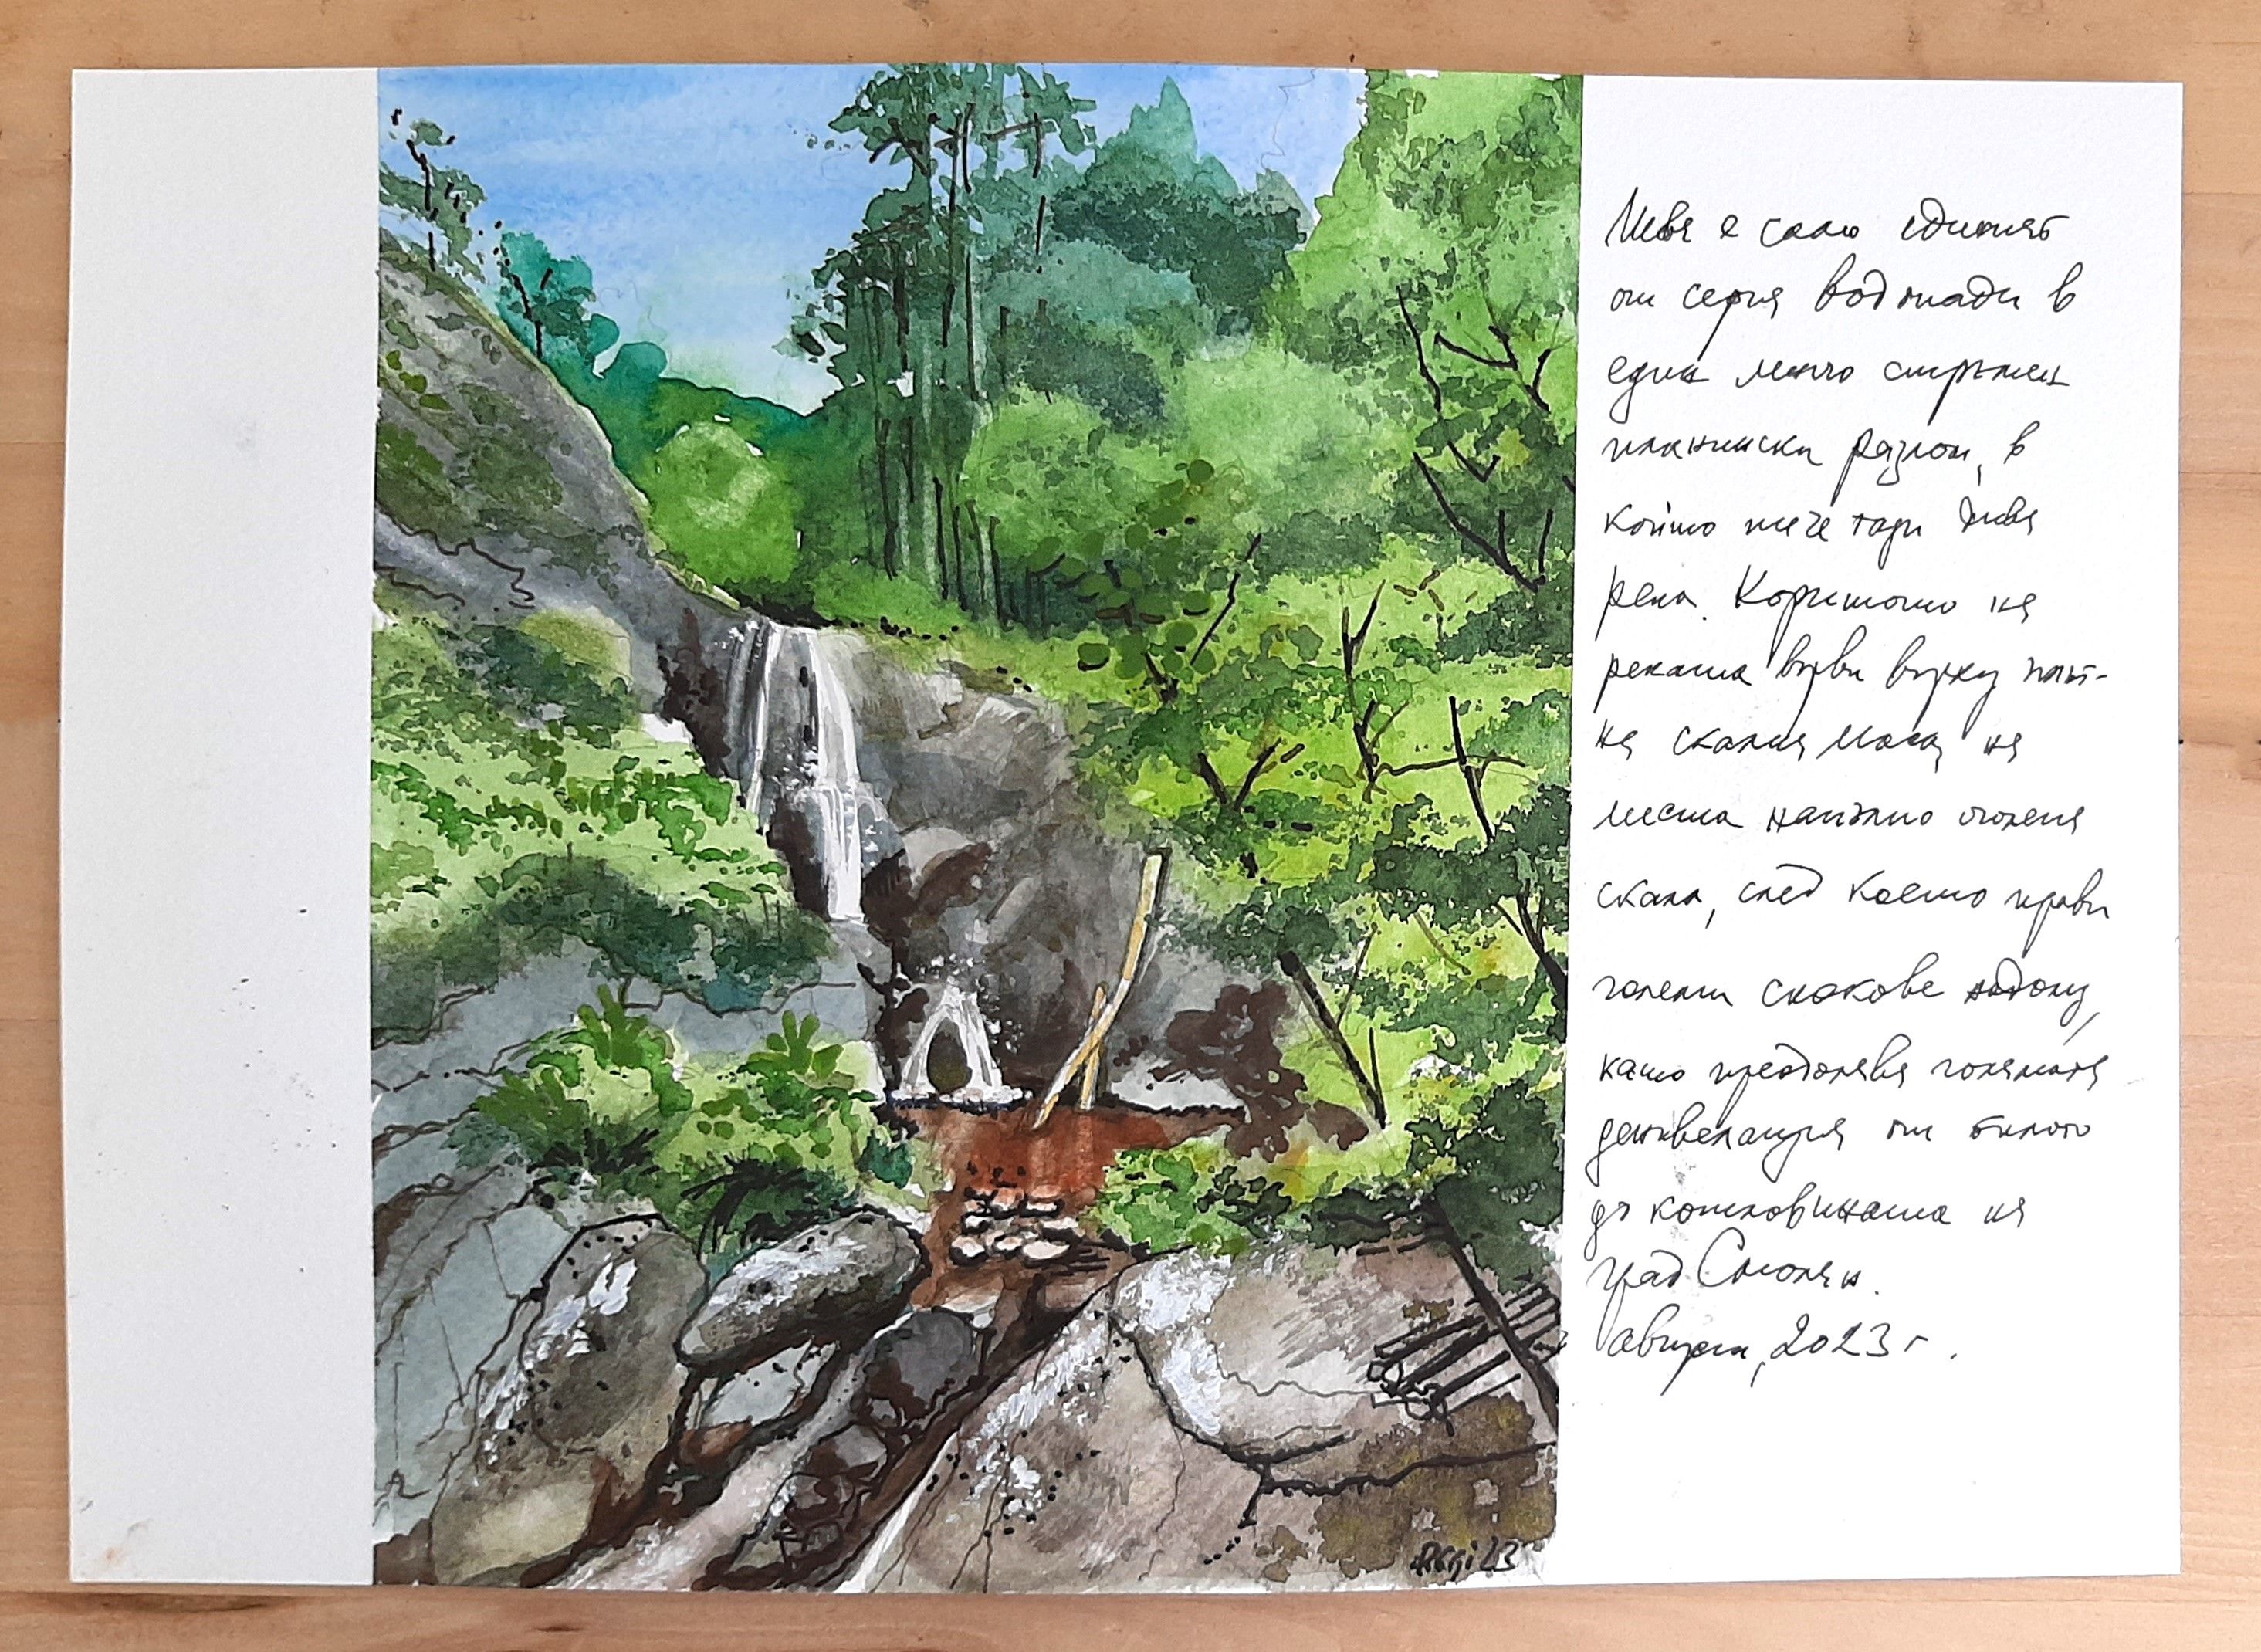 Това е само единият
от серия водопади в
един много стръмен
планински разлом, в
който тече тази
река. Коритото на
реката върви върху
на скалня маса, на
места напълно оголена
скала, след което прави
големи скокове надолу,
като преодолява голямата
денивелация от билото
до котловината на
град Смолян.
август, 2023 г.
23